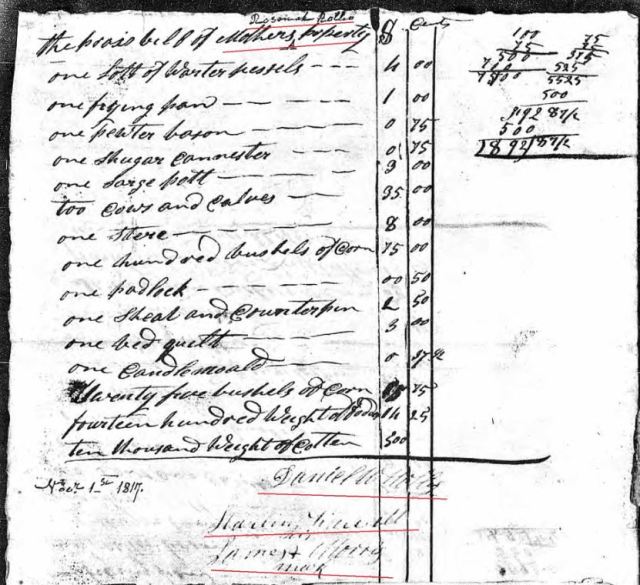 the prais bill of Mothers property $ Cents
one Sott of Warter vessels 4 00
one frying pan 1 00
one pewter bason 0 75
one Shugar Cannester 0 75
one large pott 3 00
too Cows and Calves 35 00
one Stere 8 00
one hundred bushels of Corn 75 00
one padlock 00 50
one Sheat and Counterpin 2 50
one bed quilt 3 00
one Candlemoald 0 37 1/2
Twenty five bushels of Corn 75
fourteen hundred Weight of Fodder 14 25
ten thousand Weight of Cotten 500
Novr. 1st 1817.
Daniel
James
mark
100
75
500
700
7500
75
75
525
5525
500
500
1892|87 1/2